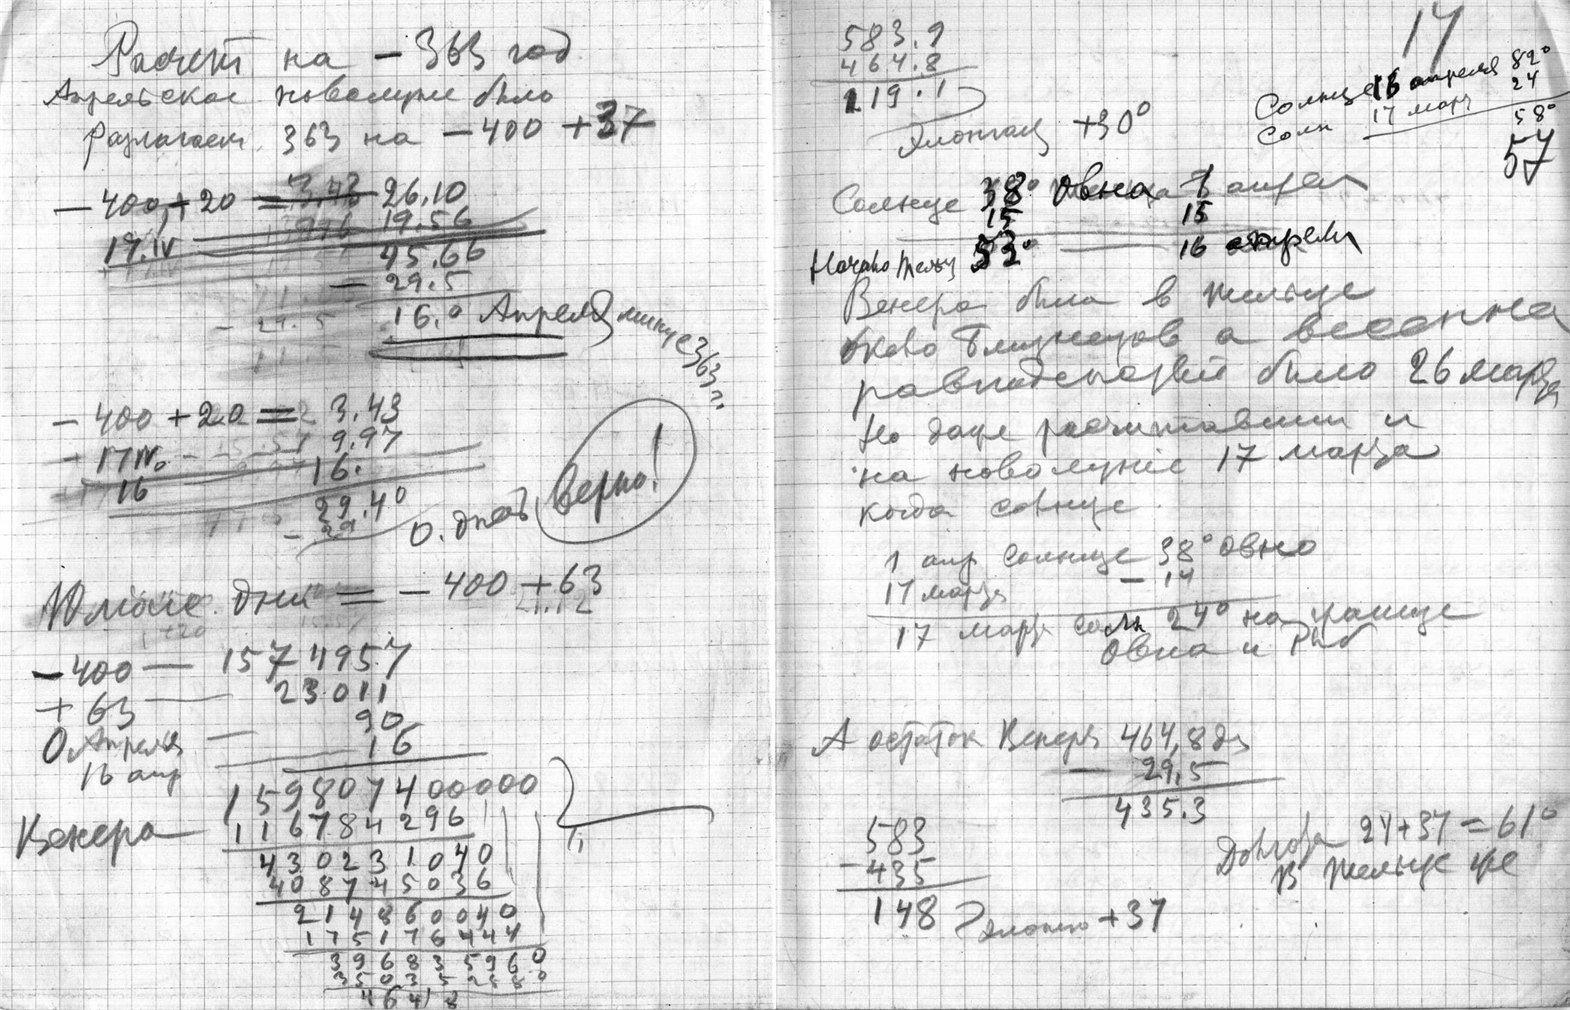 Расчет на -363 год
Апрельское новолуние было
Разлагаем 363 на -400 +37
-400,+20 = 3,43 26.10
19.IV 19.56
45.66
- 29.5
16.0 Апреля минус 363 г.
-400 +20 = 3.43
- 17 IV. 9.97
16 16.
29.40
- 29
0. дней Верно!
Юлиане. дни = -400 +63
-400 — 1574957
+63 — 23011
0 Апреля — 90
16 апр 16
1598074 00000
Венера 116784296
430231040
408745036
214860040
175176444
39683596 0
46418
583.9
464.8
119.1
Элонгац +30°
17
Солнце 16 апреля 82°
Солн 17 март 24
58°
57
Солнце 38° Овна 1 апрел
15 15
Начало Тельц 53° — 16 апреля
Венера была в тельце
около Близнецов а весенна
равноденствие было 26 марта
Но даже рассчитавши и
на новолуние 17 марта
когда солнце
1 апр Солнце 38° Овно
17 марта - 14
17 марта Солн 24° на границе
Овна и Рыб
А остаток Венеры 464,8 дн
- 29,5
435.3
583
- 435
148 Элонго +37
Долгота 24+37 = 61°
В тельце же